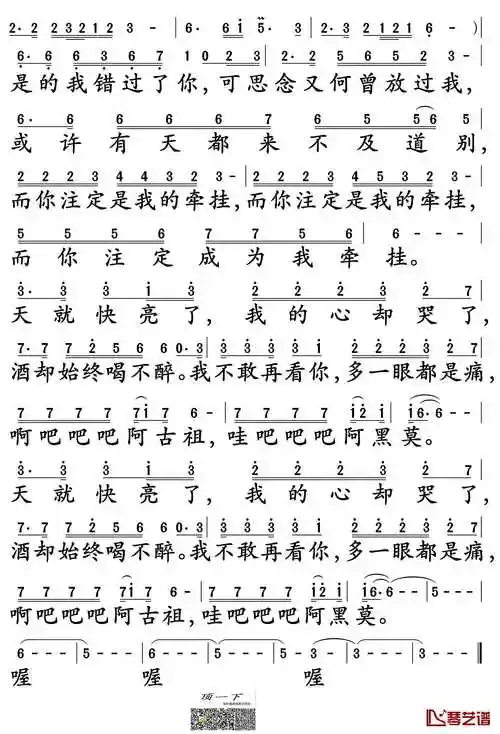 2· 2 2 3 2 1 2 3 | 6· 6 i 5· 3 | 2· 3 2 1 2 1 6 - )|
6· 6 6 3 6 7 1 0 2 3 | 2· 2 5 6 5 2 3 |
是的我错过了你,可思念又何曾放过我,
6· 6 6 6 6 7 6 5 5 6 |
或许有天都来不及道别,
2 2 2 3 4 4 3 2 3 | 2 2 2 3 4 5 3 2 3 |
而你注定是我的牵挂,而你注定是我的牵挂,
5 5 5 6 7 7 5 6 | 6 - - - |
而你注定成为我牵挂。
3· 3 3 i 3 | 2 2 2 3 2 7 |
天就快亮了,我的心却哭了,
7· 7 7 2 5 6 6 0· 3 | 3 3 3 3 i 2 2 2 3 2 7 |
酒却始终喝不醉。我不敢再看你,多一眼都是痛,
7 7 7 7 7 i 7 6 - | 7 7 7 7 i 2 i | i 6· - - |
啊吧吧吧阿古祖,哇吧吧吧阿黑莫。
3· 3 3 i 3 | 2 2 2 3 2 7 |
天就快亮了,我的心却哭了,
7· 7 7 2 5 6 6 0· 3 | 3 3 3 3 i 2 2 2 3 2 7 |
酒却始终喝不醉。我不敢再看你,多一眼都是痛,
7 7 7 7 7 i 7 6 - | 7 7 7 7 i 2 i | i 6· 6 - - | 5 - - - |
啊吧吧吧阿古祖,哇吧吧吧阿黑莫。
6 - - - | 5 - - - | 6 - - - | 5 - - - | 3 - - - | 3 - - - |
喔 喔 喔
顶一下
琴艺谱